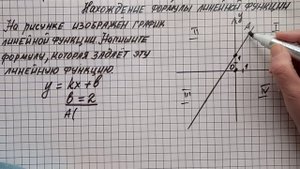 Нахождение формулы линейной функции
На рисунке изображён график
линейной функции. Напишите
формулу, которая задаёт эту
линейную функцию.
y = kx + b
b = 2
A(
y
A
I
II
III
IV
0
1